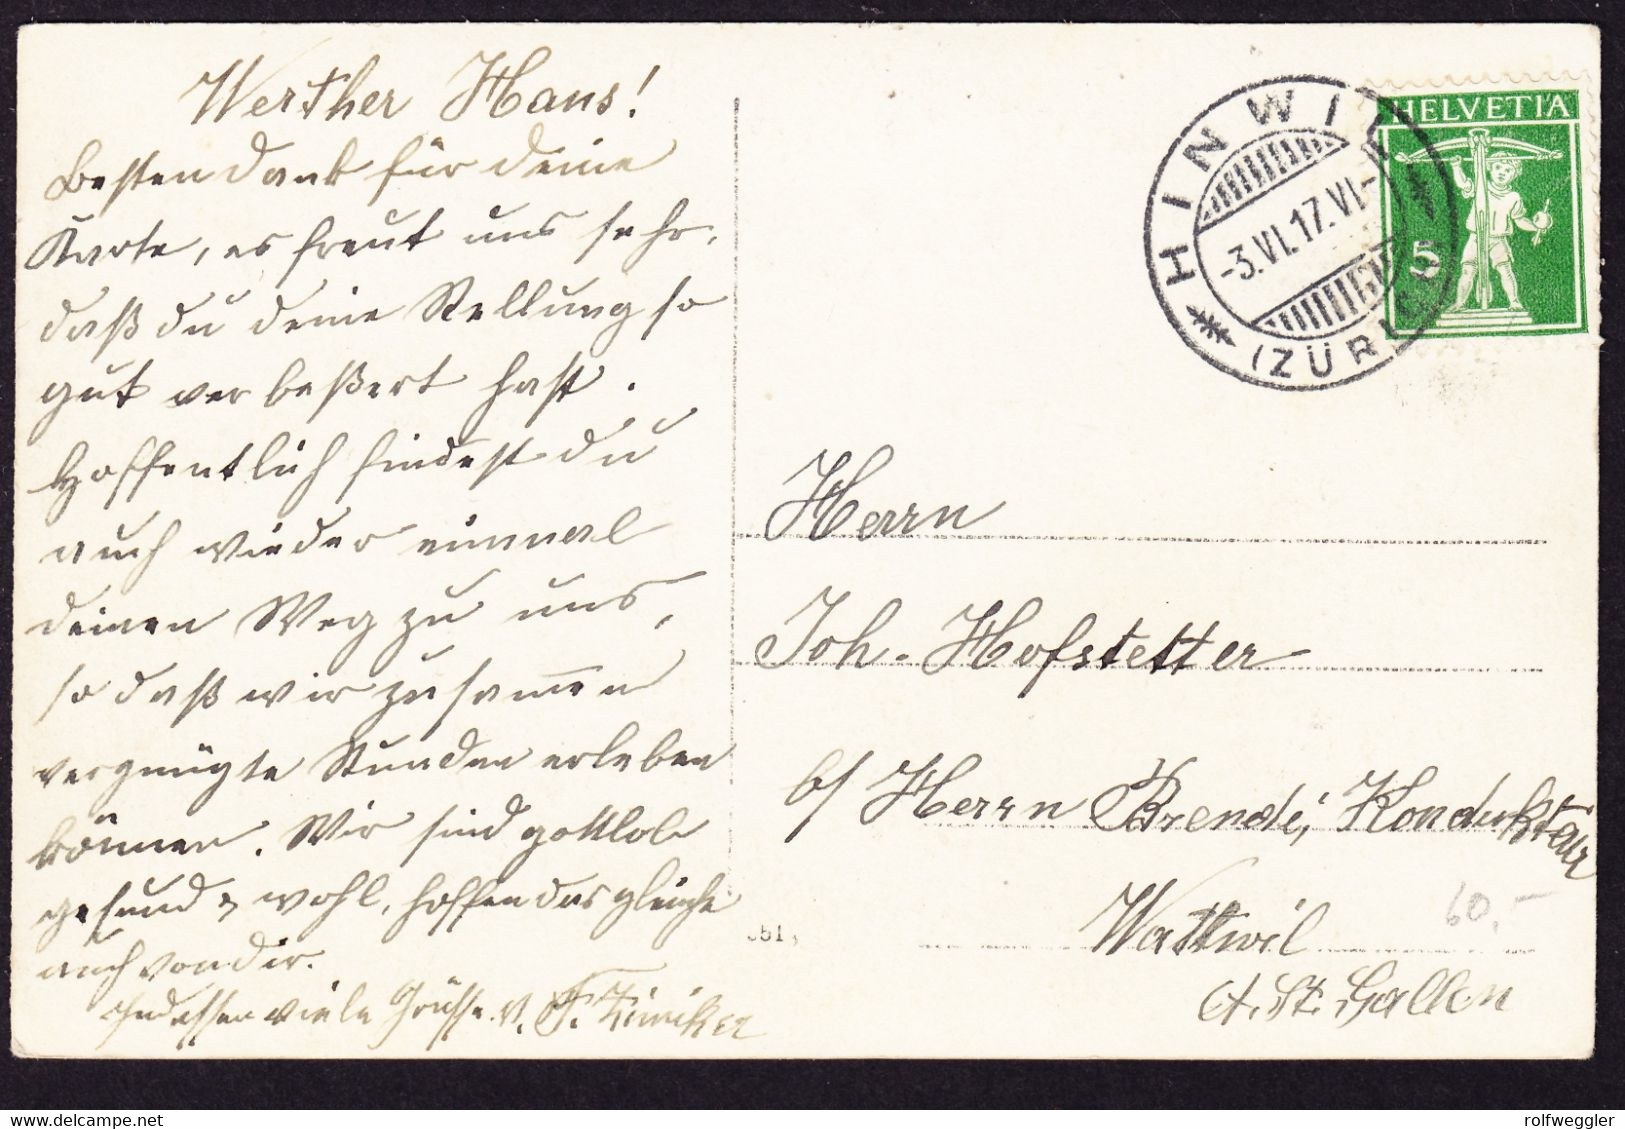 Werther Hans!
Besten Dank für deine
Karte, es freut uns sehr,
daß du deine Stellung so
gut verbeßert hast.
Hoffentlich findest du
auch wieder einmal
deinen Weg zu uns,
so daß wir zusammen
vergnügte Stunden erleben
können. Wir sind gottlob
gesund & wohl, hoffen das gleiche
auch von dir.
Indessen viele Grüsse v. F.
HINWIL
-3.VI.17.VI-
(ZÜRICH)
HELVETIA
5
Herrn
Joh. Hofstetter
b/ Herrn Brendi, Kondukteur
Wattwil
Ct. St. Gallen
60.-
351
rolfweggler